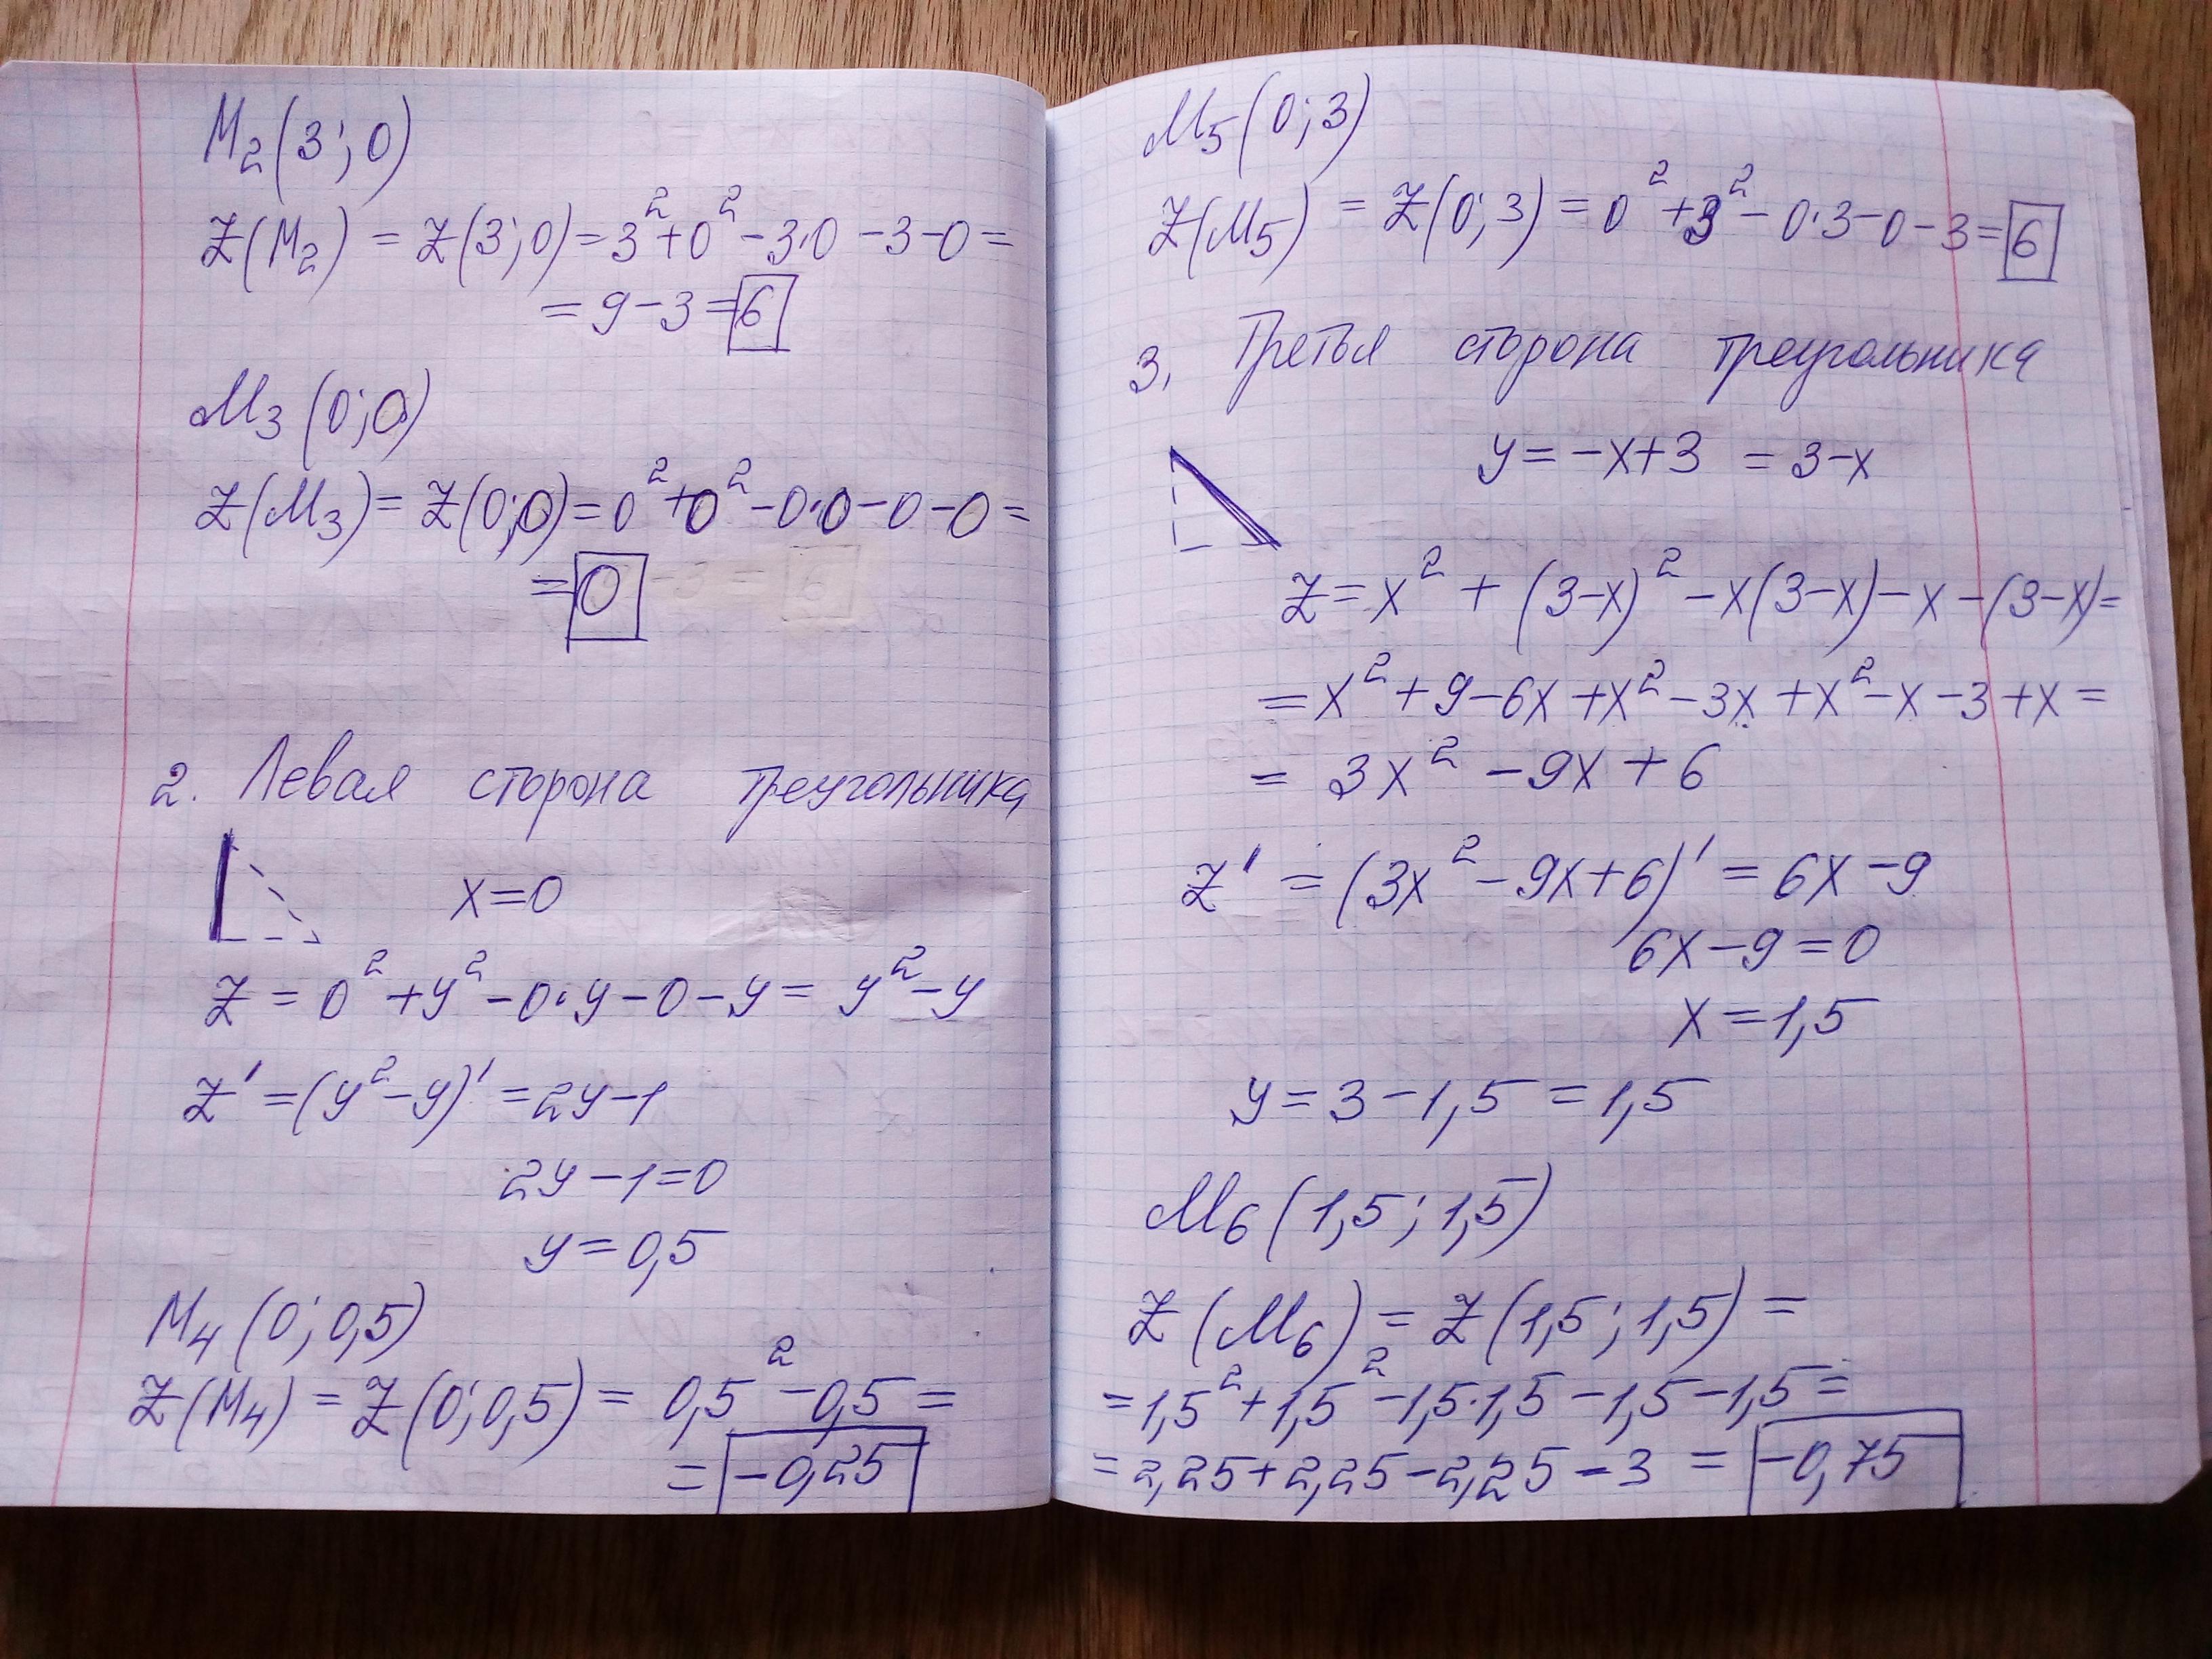 M₂(3; 0)
Z(M₂) = Z(3; 0) = 3² + 0² - 3·0 - 3 - 0 =
= 9 - 3 = 6
M₃(0; 0)
Z(M₃) = Z(0; 0) = 0² + 0² - 0·0 - 0 - 0 =
= 0
2. Левая сторона треугольника
x = 0
Z = 0² + y² - 0·y - 0 - y = y² - y
Z' = (y² - y)' = 2y - 1
2y - 1 = 0
y = 0,5
M₄(0; 0,5)
Z(M₄) = Z(0; 0,5) = 0,5² - 0,5 =
= -0,25
M₅(0; 3)
Z(M₅) = Z(0; 3) = 0² + 3² - 0·3 - 0 - 3 = 6
3. Третья сторона треугольника
y = -x + 3 = 3 - x
Z = x² + (3-x)² - x(3-x) - x - (3-x) =
= x² + 9 - 6x + x² - 3x + x² - x - 3 + x =
= 3x² - 9x + 6
Z' = (3x² - 9x + 6)' = 6x - 9
6x - 9 = 0
x = 1,5
y = 3 - 1,5 = 1,5
M₆(1,5; 1,5)
Z(M₆) = Z(1,5; 1,5) =
= 1,5² + 1,5² - 1,5·1,5 - 1,5 - 1,5 =
= 2,25 + 2,25 - 2,25 - 3 = -0,75